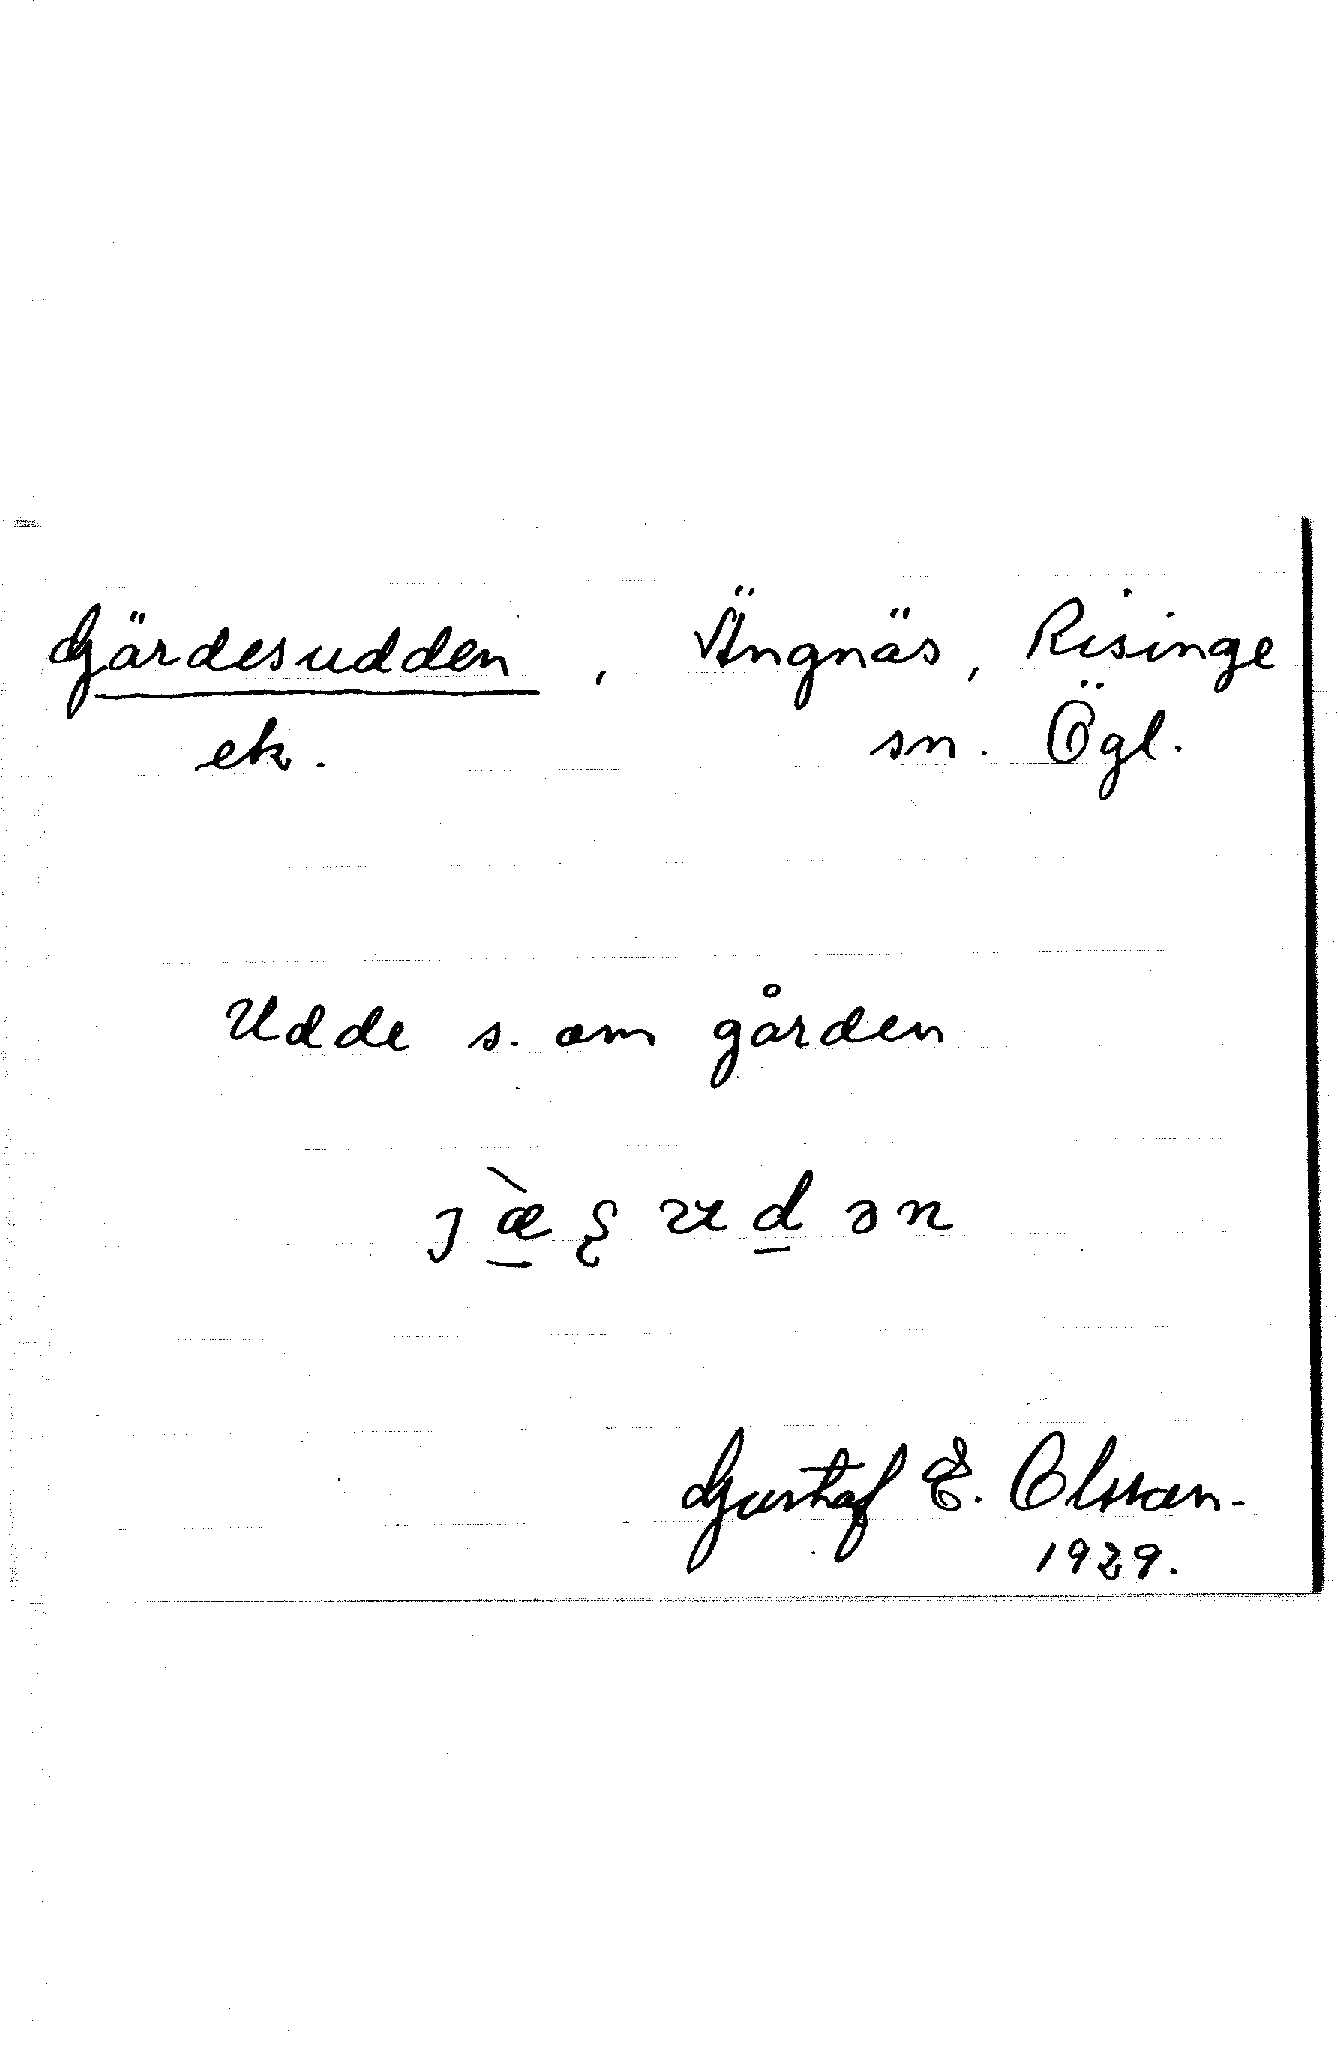 Gärdesudden, Ängnäs, Risinge
ek. sn. Ögl.
Udde s. om gården
Gustaf E. Olsson.
1929.